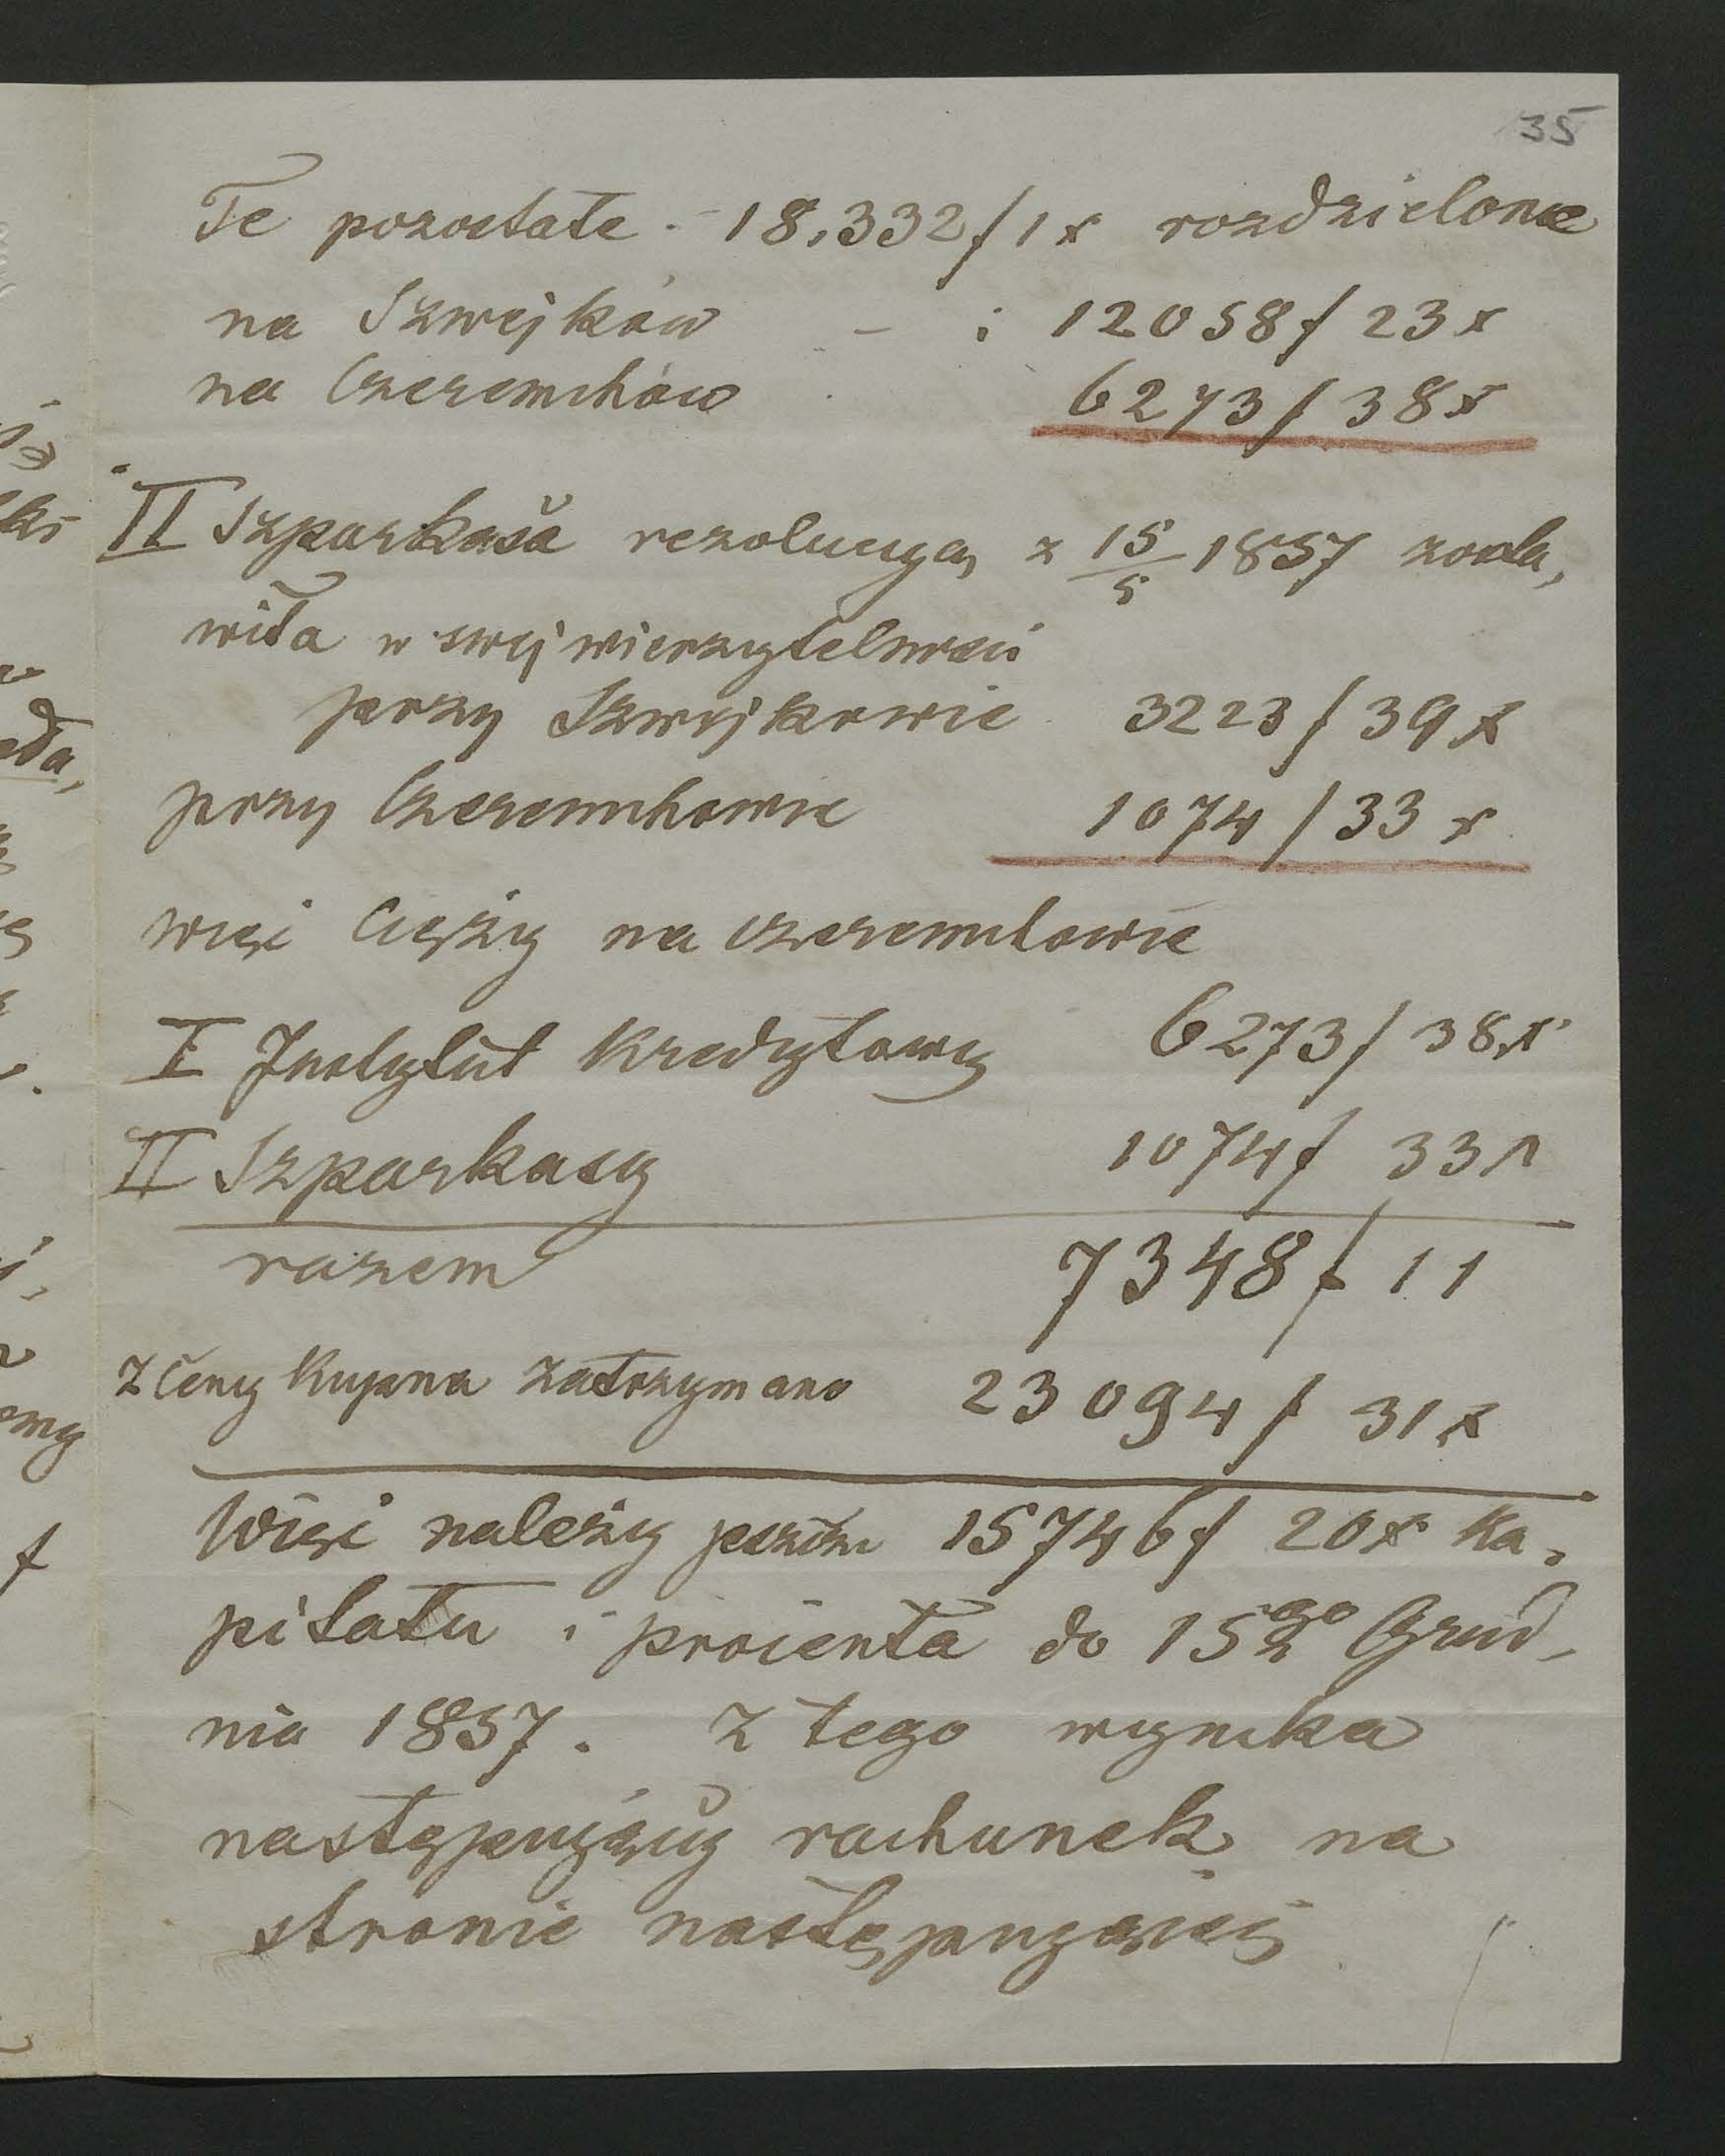 35
Te pozostałe - 18,332 f 1 x rozdzielone
na Szwejków - : 12058 f 23 x
na Czeremchów 6273 f 38 x
II Szparkasa rezolucyą z 15/5 1857 zosta,
wiła w swej wierzytelności
przy Szwejkowie 3223 f 39 x
przy Czeremchowie 1074 f 33 x
więc cięży na Czeremchowie
I Instytut Kredytowy 6273 f 38 x
II Szparkasy 1074 f 33 x
razem 7348 f 11
z Ceny Kupna zatrzymano 23094 f 31 x
Więc należy jeszcze 15746 f 20 x Ka,
pitału i procenta do 15go Grud,
nia 1857. Z tego wynika
następujący rachunek na
stronie następującej